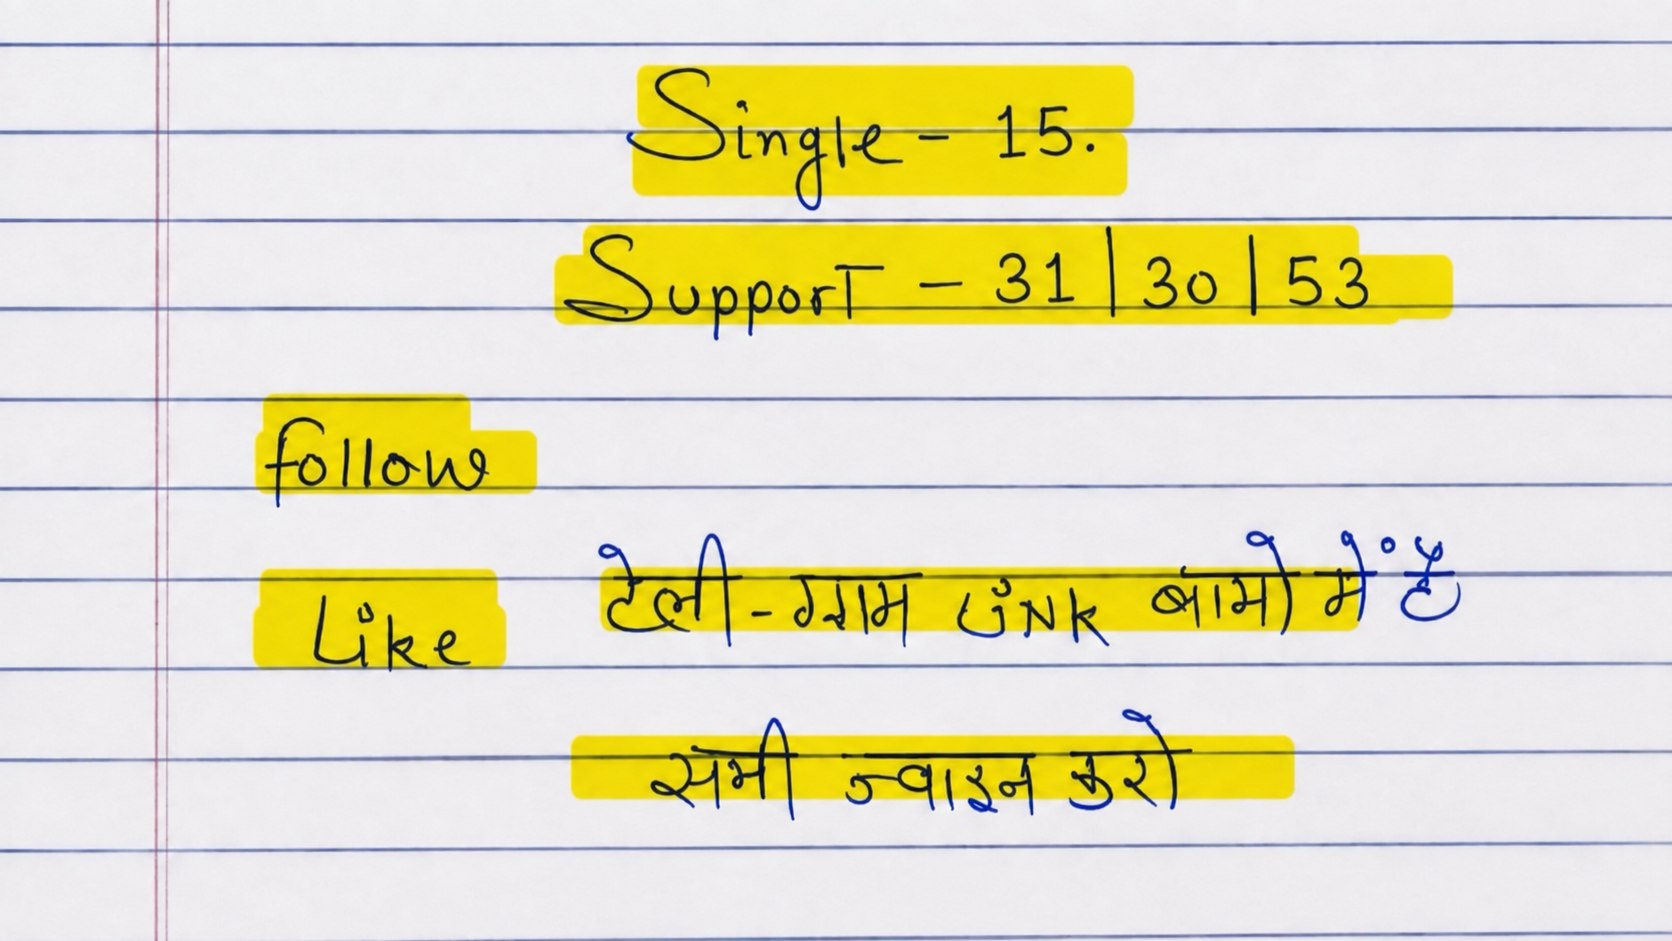 Single - 15.
Support - 31 | 30 | 53
follow
Like
टेली-ग्राम LiNK बामो में है
सभी ज्वाइन करो